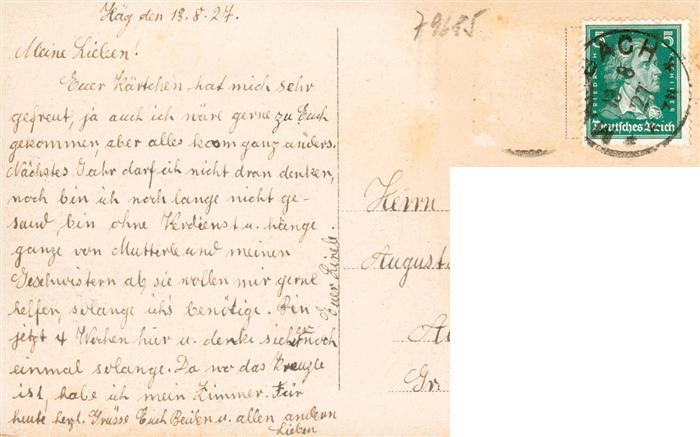 Häg den 13.8.27.
Meine Lieben!
Euer Kärtchen hat mich sehr
gefreut, ja auch ich wäre gerne zu Euch
gekommen, aber alles kam ganz anders.
Nächstes Jahr darf ich nicht dran denken,
noch bin ich noch lange nicht ge-
sund, bin ohne Verdienst u. hänge
ganze von Mutterle und meinen
Geschwistern ab, sie wollen mir gerne
helfen, solange ich's benötige. Bin
jetzt 4 Wochen hier u. denke sicher noch
einmal solange. Da wo das Kreuzle
ist, habe ich mein Zimmer. Für
heute herzl. Grüsse Euch Beiden u. allen andern
Lieben
Euer Lisele.
79685
5 5
FRIEDRICH
SCHILLER
Deutsches Reich
BACH
13 8
27
Herrn
August
Gr.